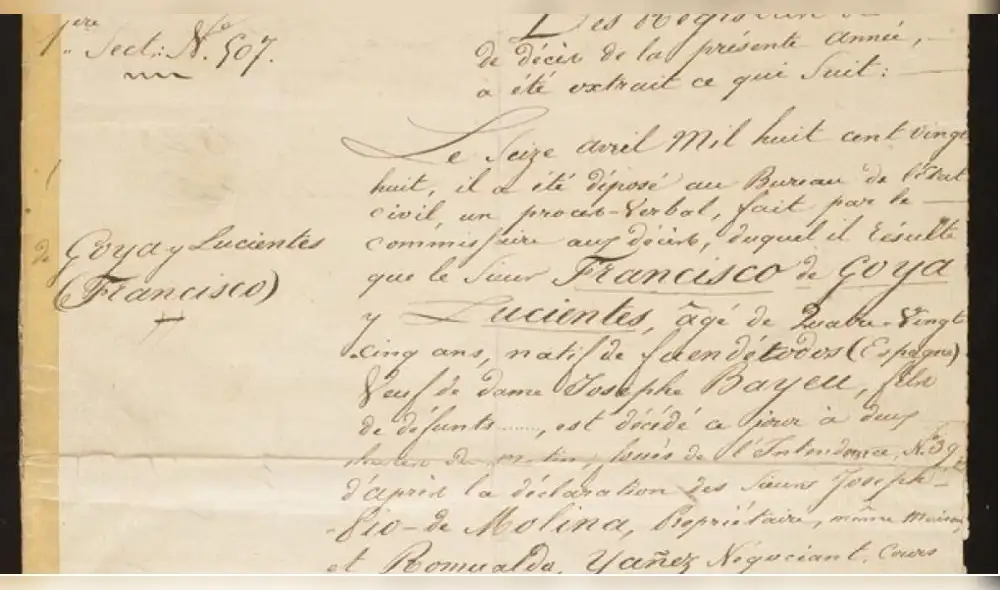 1ère Sect: Nº 507.
Des Registres
de décès de la présente Année,
a été extrait ce qui Suit:
Le Seize avril Mil huit cent vingt
huit, il a été déposé au Bureau de l'Etat
civil, un procès-Verbal, fait par le
commissaire aux décès, duquel il résulte
que le Sieur Francisco de Goya
y Lucientes, âgé de Quatre-Vingt
cinq ans, natif de fuendétodos (Espagne)
Veuf de dame Josephe Bayeu, fils
de défunts ........, est décédé ce jour à deux
heures du matin, fossés de l'Intendance, Nº 39,
d'après la déclaration des Sieurs Joseph-
Pio-de Molina, Propriétaire, même Maison,
et Romualdo Yañez Négociant, Cours
de
Goya y Lucientes
(Francisco)